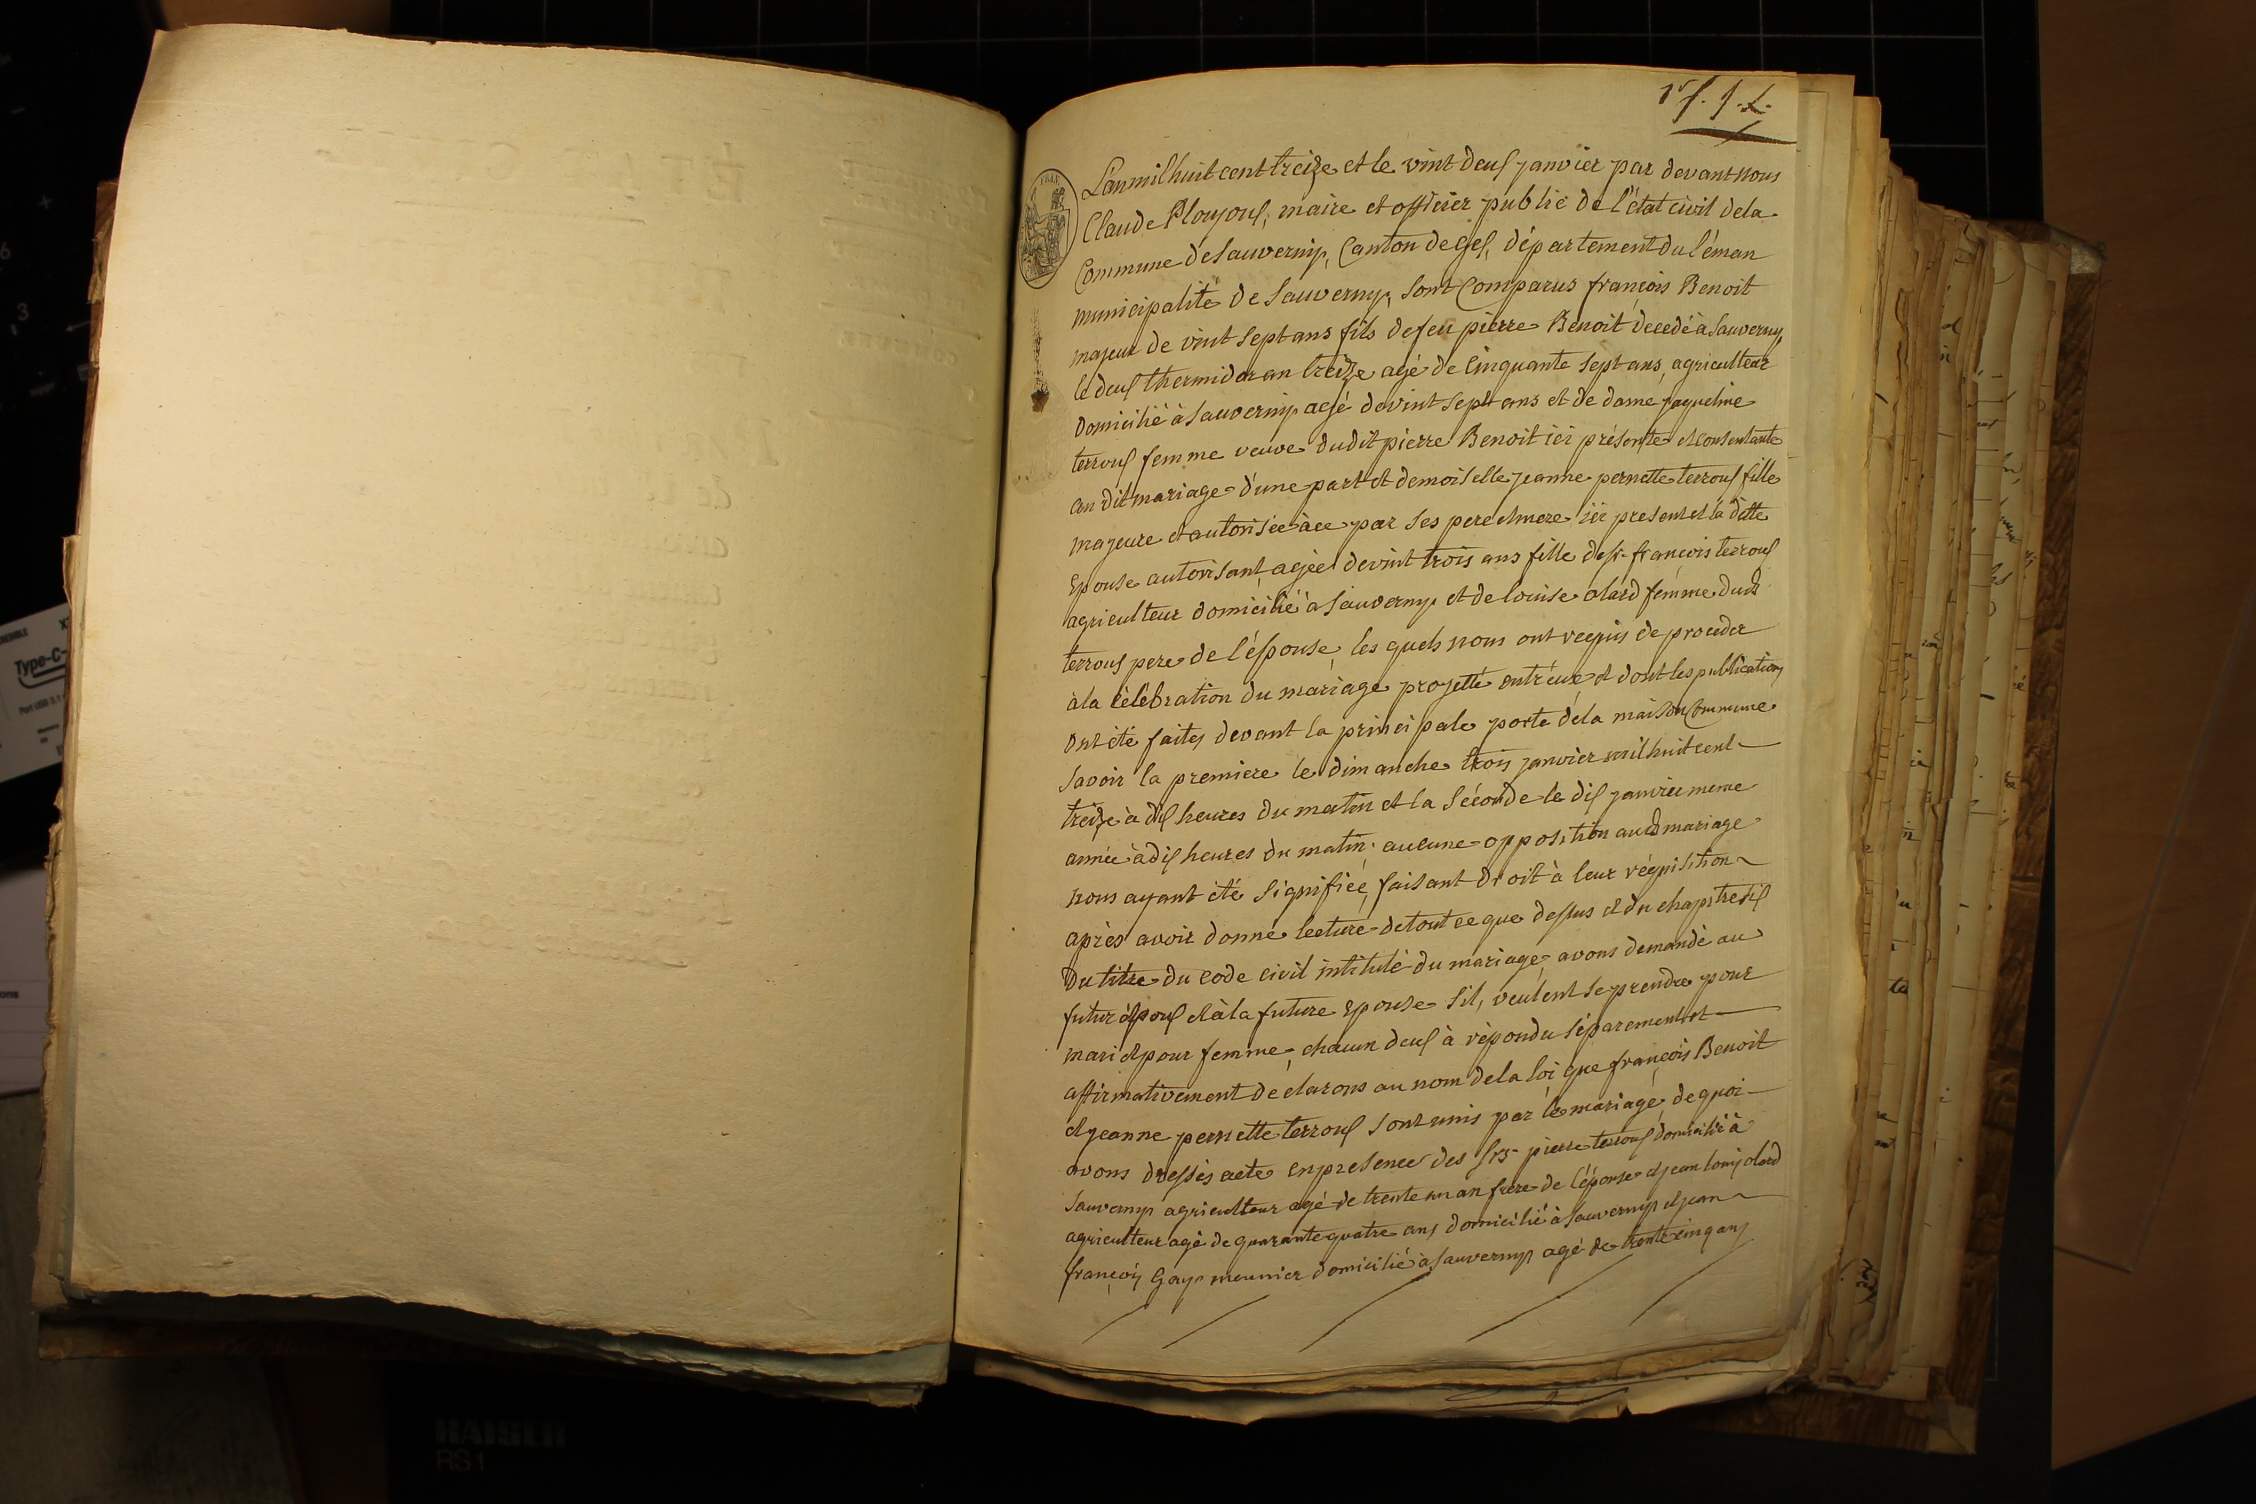 1r f.
L'an mil huit cent treize et le vint deux janvier par devant nous
Claude Ploujoux, maire et officier public de l'état civil dela
Commune de Sauverny, Canton de Gex, département du léman
municipalité de Sauverny, sont Comparus françois Benoit
majeur de vint sept ans fils de feu pierre Benoit decedé à Sauverny,
le deux thermidor an treize agé de Cinquante sept ans, agriculteur
domicilié à Sauverny agé de vint sept ans et de dame jaqueline
terroux femme veuve dudit pierre Benoit ici présente et Consentante
au dit mariage d'une part et demoiselle jeanne pernette terroux fille
majeure et autorisée à ce par ses pere et mere ici present et la ditte
Epouse autorisant, agée de vint trois ans fille de sr. françois terroux
agriculteur domicilié à Sauverny et de louise olard femme dud
terroux pere de l'épouse, les quels nous ont requis de proceder
à la célébration du mariage projetté entr'eux et dont les publications
ont été faites devant la principale porte dela maison Commune
Savoir la premiere le dimanche trois janvier mil huit cent
treize à dix heures du matin et la seconde le dix janvier meme
année à dix heures du matin. aucune opposition aud mariage
nous ayant été signifiée, faisant droit à leur réquisition
après avoir donné lecture de tout ce que dessus et du chapitre six
Du titre du code civil intitulé du mariage, avons demandé au
futur époux et à la future Epouse s'il, veulent se prendre pour
mari et pour femme, chacun deux à répondu séparement et
affirmativement déclarons au nom de la loi que françois Benoit
et jeanne pernette terroux sont unis par le mariage, de quoi
avons dressés acte en presence des srs. pierre terroux domicilié à
Sauverny agriculteur agé de trente un an frere de l'épouse et jean louis olard
agriculteur agé de quarante quatre ans domicilié à Sauverny et jean
françois Gay meunier domicilié à Sauverny agé de trente cinq ans
KAISER
RS1
Type-C